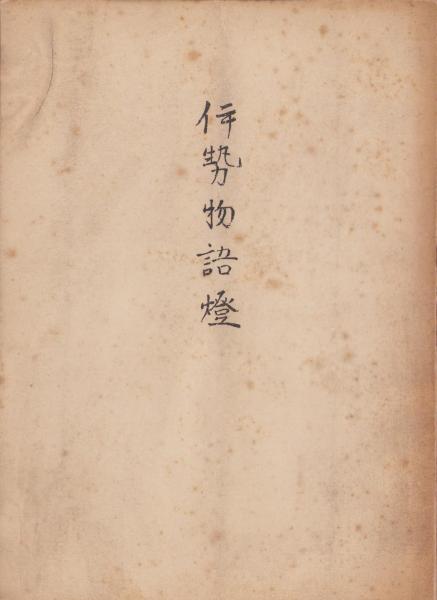 伊勢物語燈